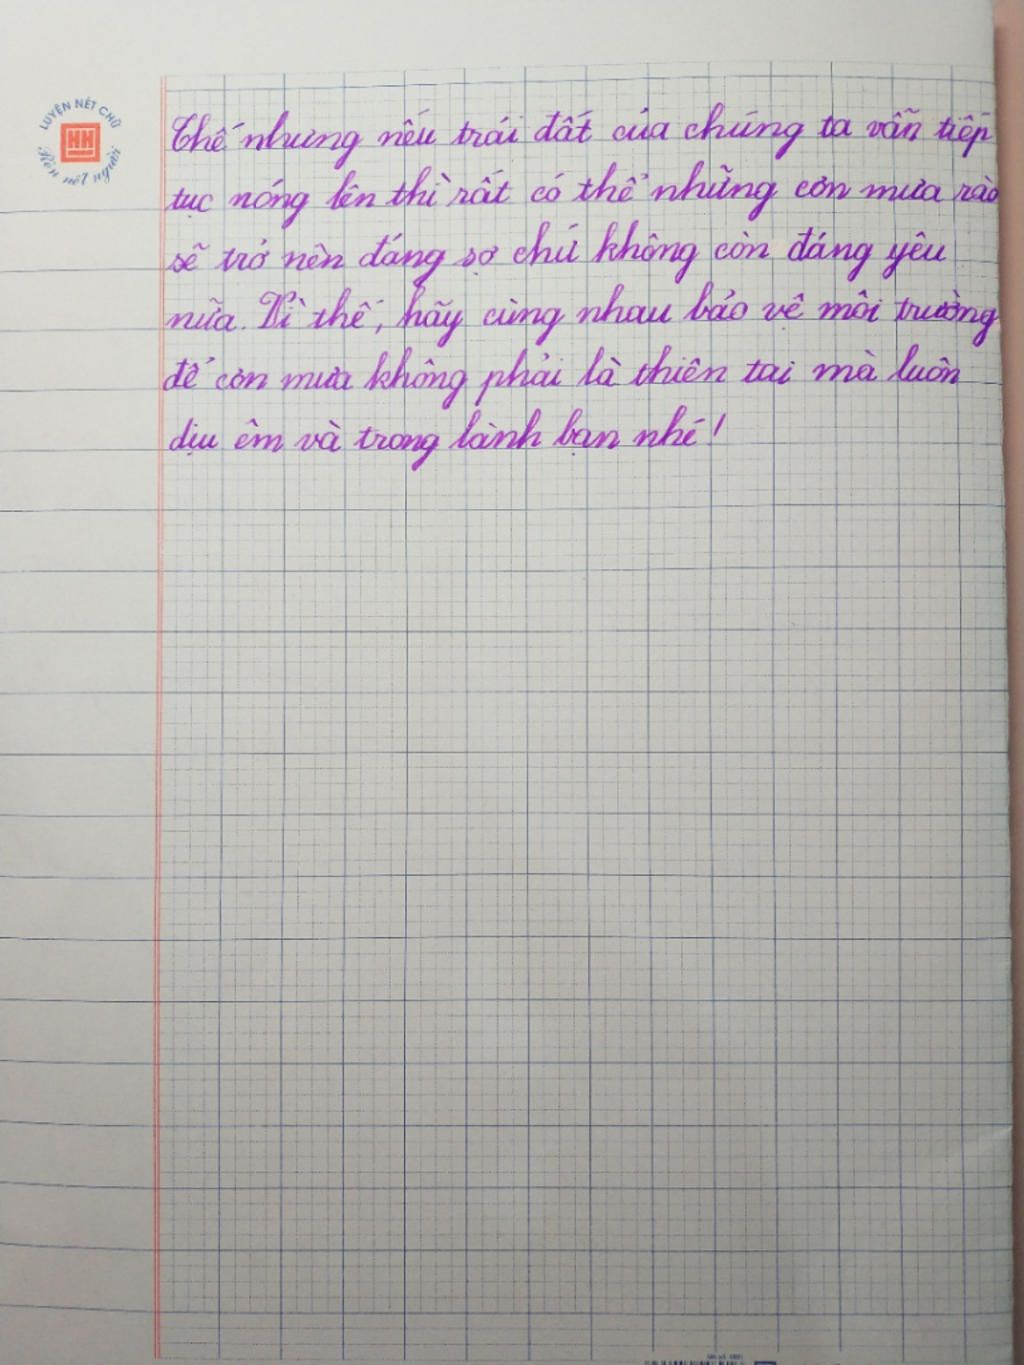 LUYỆN NÉT CHỮ
HH
Rèn nết người
Thế nhưng nếu trái đất của chúng ta vẫn tiếp
tục nóng lên thì rất có thể những cơn mưa rào
sẽ trở nên đáng sợ chứ không còn đáng yêu
nữa. Vì thế, hãy cùng nhau bảo vệ môi trường
để cơn mưa không phải là thiên tai mà luôn
dịu êm và trong lành bạn nhé!